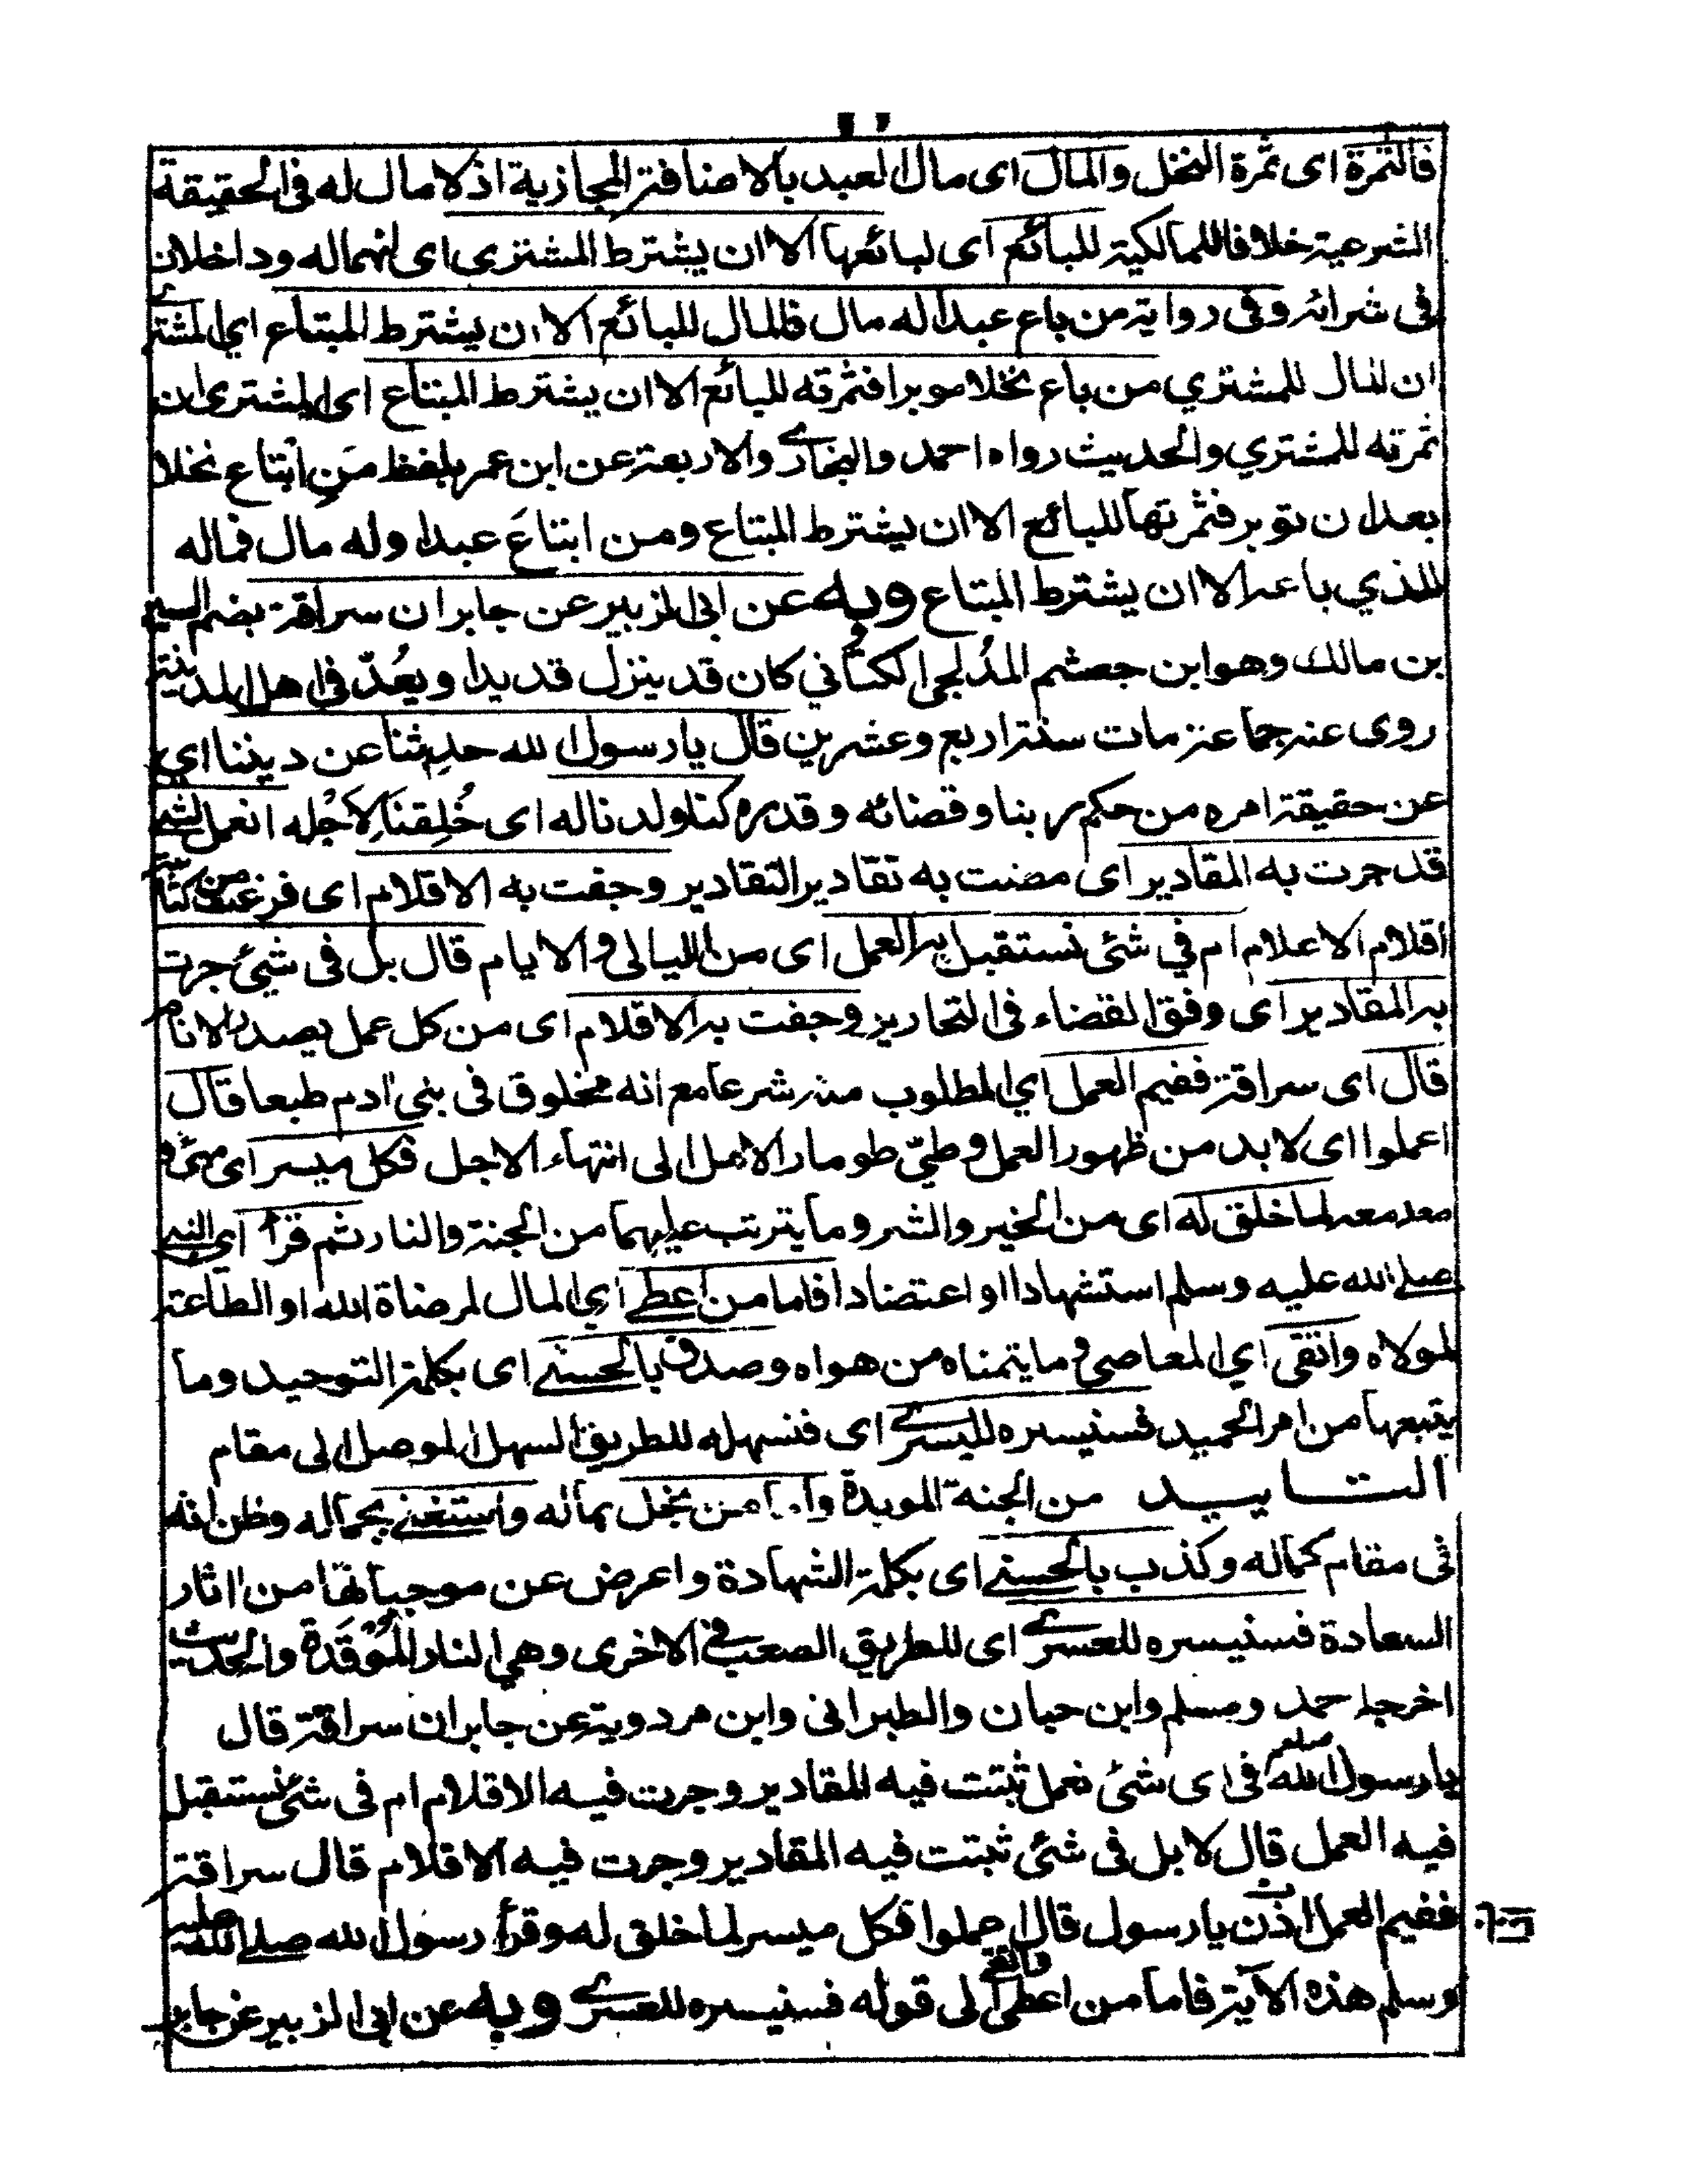 فالثمرة اى ثمرة النخل والمال اى مال العبد بالاضافة المجازية اذ لا مال له فى الحقيقة
الشرعية خلافا للمالكية للبائع اى لبائعها الا ان يشترط المشترى اى انهما له وداخلان
فى شرائه وفى رواية من باع عبدا له مال فالمال للبائع الا ان يشترط المبتاع اي المشترى
ان المال للمشتري من باع نخلا موبرا فثمرته للبائع الا ان يشترط المبتاع اى المشترى ان
ثمرته للمشتري والحديث رواه احمد والبخارى والاربعة عن ابن عمر بلفظ مَنِ ابتاع نخلا
بعد ان توبر فثمرتها للبائع الا ان يشترط المبتاع ومن ابتاعَ عبدا وله مال فماله
للذي باعه الا ان يشترط المبتاع وبه عن ابى الزبير عن جابر ان سراقة بضم السين
بن مالك وهو ابن جعشم المدُلجى الكناني كان قد ينزل قديدا ويعُدّ فى اهل المدينة
روى عنه جماعة مات سنة اربع وعشرين قال يا رسول الله حدِثنا عن ديننا اي
عن حقيقة امره من حكم ربنا وقضائه وقدره كنا ولدنا له اى خُلِقنَا لِاَجْلِه انعمل لشئ
قد جرت به المقادير اى مضت به تقادير التقادير وجفت به الاقلام اى فرغت من كتابة
اقلام الاعلام ام في شئى نستقبل به العمل اى من الليالى والايام قال بل فى شيئ جرت
به المقادير اى وفق القضاء فى التحارير وجفت به الاقلام اى من كل عمل يصدر الانام
قال اى سراقة ففيم العمل اي المطلوب منه شرعا مع انه مخلوق فى بنى ادم طبعا قال
اعملوا اى لا بد من ظهور العمل وطيّ طومار الامل الى انتهاء الاجل فكل ميسر اى مهئ و
معد معه لما خلق له اى من الخير والشر وما يترتب عليهما من الجنة والنار ثم قرأ اي النبى
صلى الله عليه وسلم استشهادا او اعتضادا فاما من اعطى اي المال لمرضاة الله او الطاعة
لمولاه واتقى اي المعاصى وما يتمناه من هواه وصدق بالحسنى اى بكلمة التوحيد وما
يتبعها من امر الحميد فسنيسره لليسرى اى فنسهله للطريق السهل الموصل الى مقام
التابيد من الجنة الموبدة واما من بخل بماله واستغنى بجماله وظن انه
فى مقام كماله وكذب بالحسنى اى بكلمة الشهادة واعرض عن موجباتها من اثار
السعادة فسنيسره للعسرى اى للطريق الصعب فى الاخرى وهى النار المُوْقَدة والحديث
اخرجه احمد ومسلم وابن حبان والطبرانى وابن مردوية عن جابر ان سراقة قال
يا رسول الله صلعم فى اى شئى نعمل ثبتت فيه المقادير وجرت فيه الاقلام ام فى شئى نستقبل
فيه العمل قال لا بل فى شئى ثبتت فيه المقادير وجرت فيه الاقلام قال سراقة
ففيم العمل اذن يا رسول قال اعملوا فكل ميسر لما خلق له وقرأ رسول الله صلى الله عليه
وسلم هذه الآية فاما من اعطى واتقى الى قوله فسنيسره للعسرى وبه عن ابى الزبير عن جابر